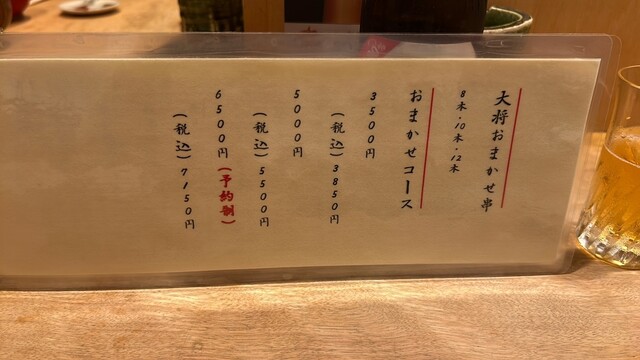 大将おまかせ串
8本・10本・12本
おまかせコース
3500円
(税込)3850円
5000円
(税込)5500円
6500円(予約制)
(税込)7150円